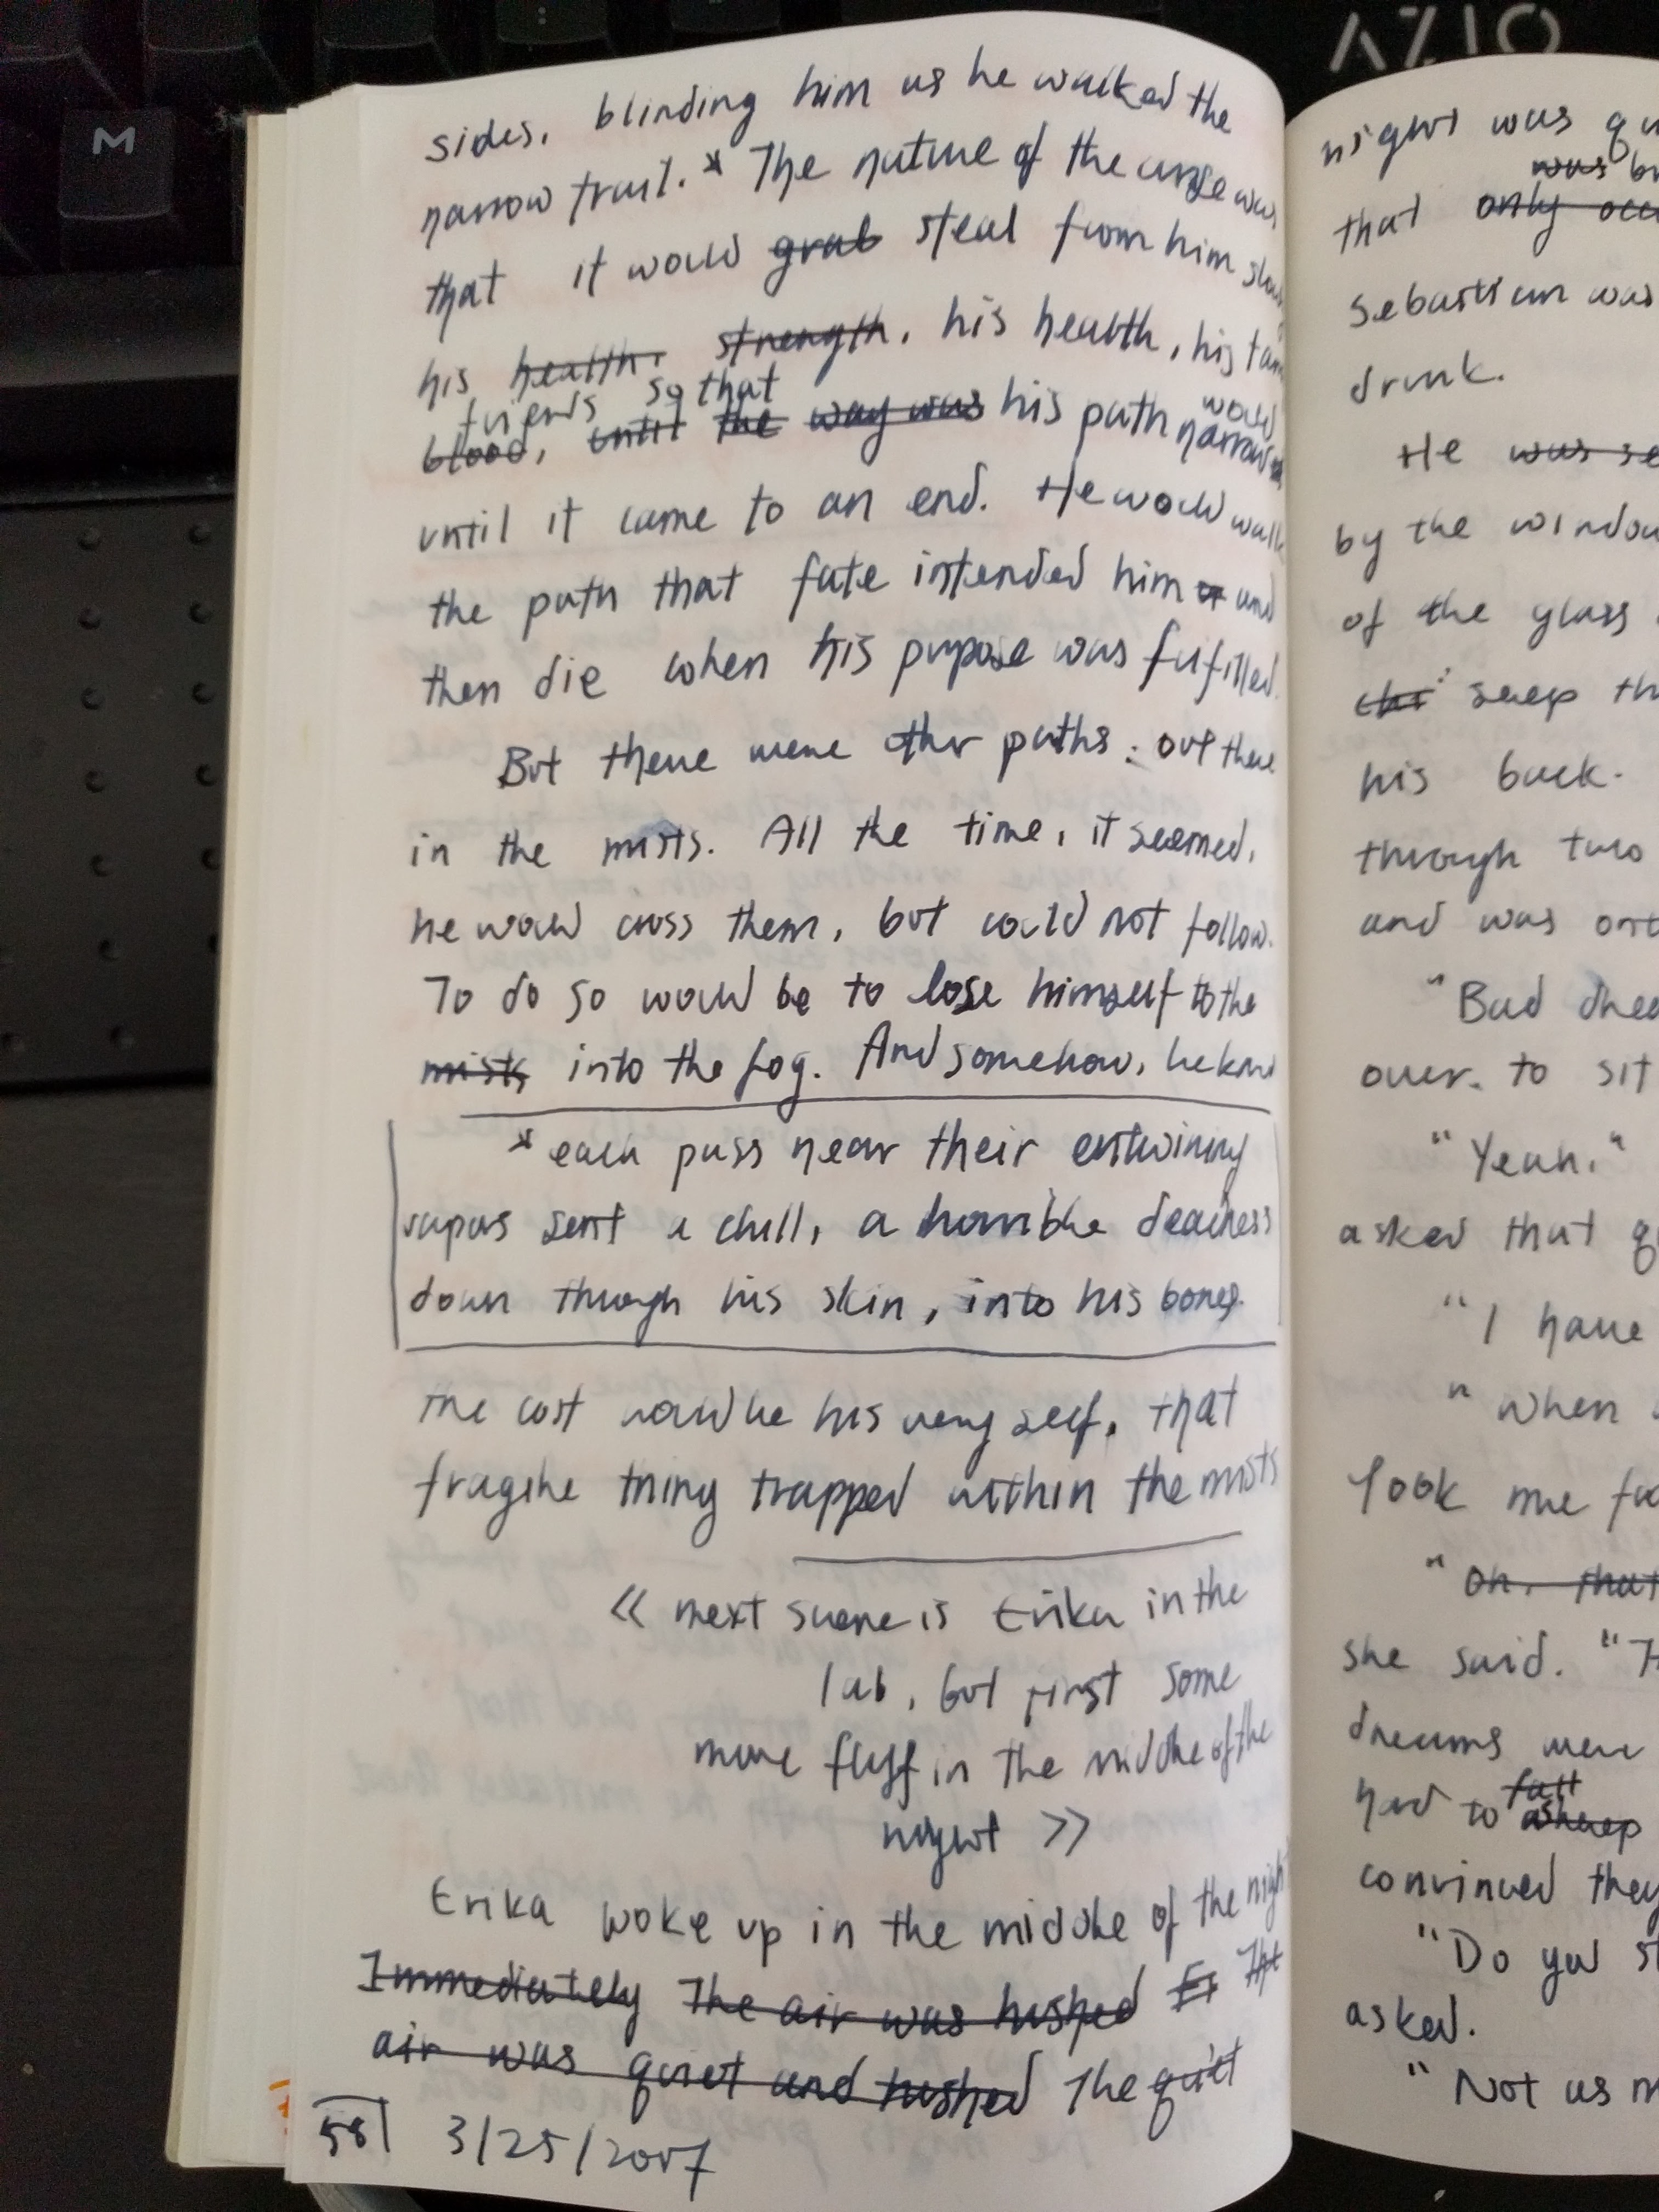 AZIO
M
sides, blinding him as he walked the
narrow trail. * The nature of the curse was
that it would grab steal from him
his health, strength, his health, his
friends so that
blood, until the way was his path would narrow
until it came to an end. He would walk
the path that fate intended him or and
then die when his purpose was fulfilled.
But there were other paths: out there
in the mists. All the time, it seemed,
he would cross them, but could not follow.
To do so would be to lose himself to the
mists into the fog. And somehow, he knew
* each pass near their entwining
vapors sent a chill, a horrible deadness
down through his skin, into his bones.
The cost would be his very self, that
fragile thing trapped within the mists
<< next scene is Erika in the
lab, but first some
more fluff in the middle of the
night >>
Erika woke up in the middle of the night
Immediately The air was hushed Er The
air was quiet and hushed The quiet
58 3/25/2007
night was
was
that only
Sebastian was
drink.
He was
by the window
of the glass
seep
his back.
through two
and was
"Bad
over to sit
"Yeah."
asked that
"I have
"When
took me
"Oh, that
she said.
dreams were
fall
had to asleep
convinced they
"Do you
asked.
"Not as